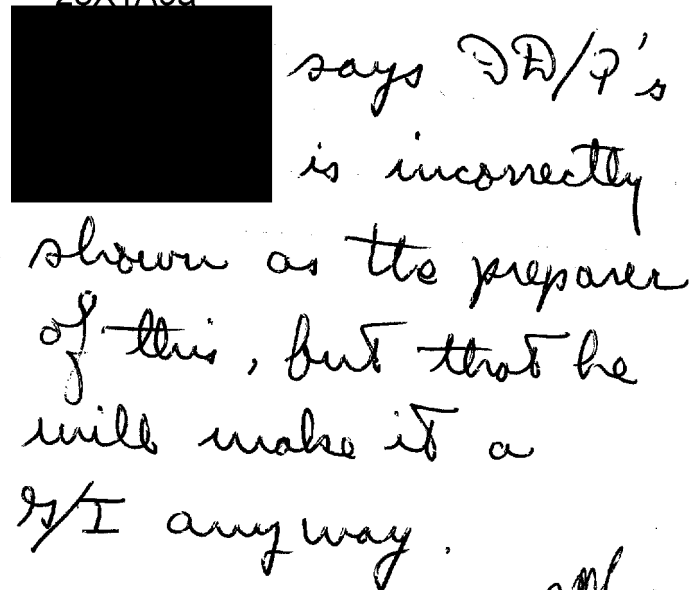 says DD/P's
is incorrectly
shown as the preparer
of this, but that he
will make it a
anyway.